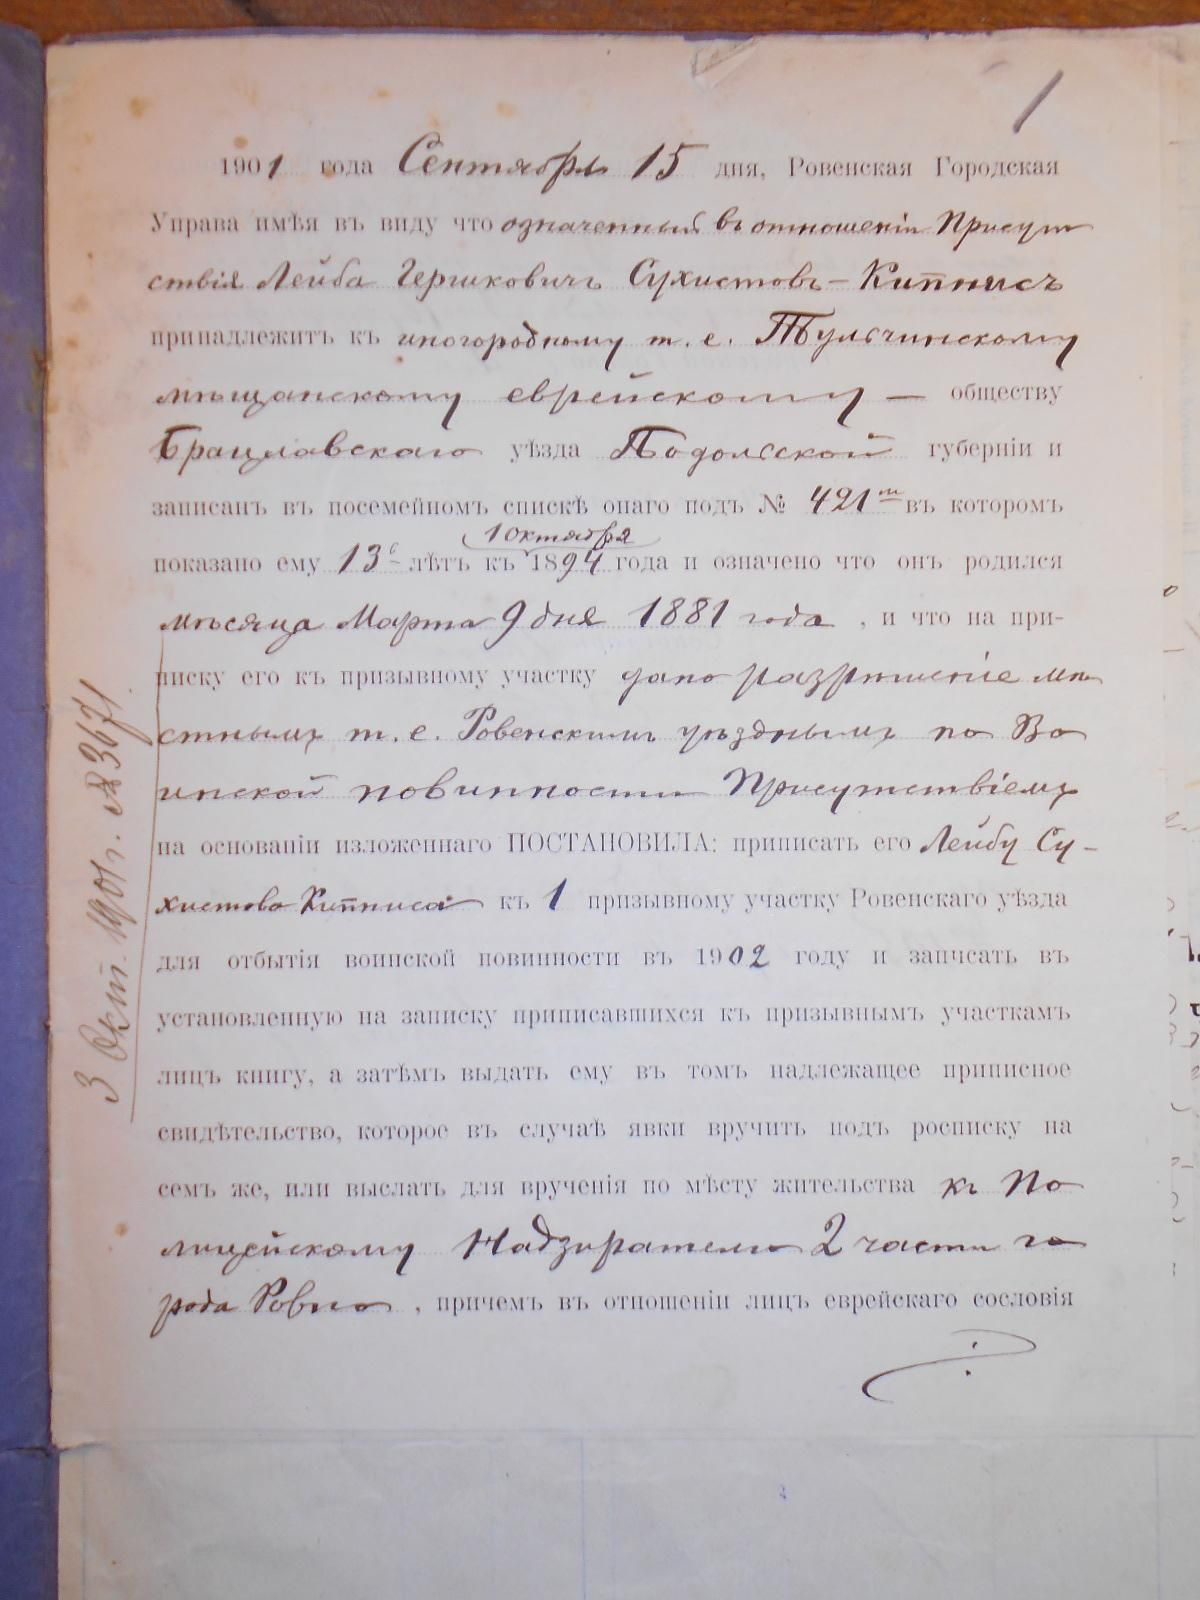 1
1901 года Сентября 15 дня, Ровенская Городская
Управа имѣя въ виду что означенный въ отношеніи Присут
ствія Лейба Гершковичъ Сухистовъ-Кипнисъ
принадлежитъ къ иногородному т. е. Тульчинскому
мѣщанскому еврейскому — обществу
Брацлавскаго уѣзда Подольской губерніи и
записанъ въ посемейномъ спискѣ онаго подъ № 421 въ которомъ
1 Октября
показано ему 13 лѣтъ къ 1894 года и означено что онъ родился
мѣсяца Марта 9 дня 1881 года, и что на при-
писку его къ призывному участку дано разрѣшеніе мѣ
стнымъ т. е. Ровенскимъ уѣзднымъ по Во
инской повинности Присутствіемъ
на основаніи изложеннаго ПОСТАНОВИЛА: приписать его Лейбу Су-
хистова Кипниса къ 1 призывному участку Ровенскаго уѣзда
для отбытія воинской повинности въ 1902 году и запчсать въ
установленную на записку приписавшихся къ призывнымъ участкамъ
лицъ книгу, а затѣмъ выдать ему въ томъ надлежащее приписное
свидѣтельство, которое въ случаѣ явки вручить подъ росписку на
семъ же, или выслать для врученія по мѣсту жительства къ По
лицейскому Надзирателю 2 части го
рода Ровно, причемъ въ отношеніи лицъ еврейскаго сословія
3 Окт. 1901 г. № 3671.